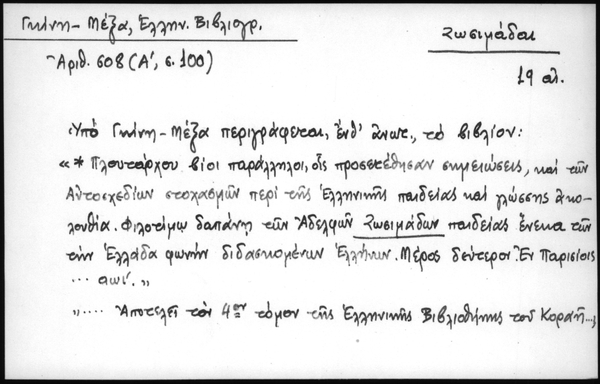 Γκίνη - Μέξα, Ἑλλην. Βιβλιογρ.
Ζωσιμάδαι
Ἀριθ. 608 (Α΄, σ. 100)
19 αἰ.
Ὑπὸ Γκίνη - Μέξα περιγράφεται, ἔνθ' ἄνωτ., τὸ βιβλίον:
« * Πλουτάρχου βίοι παράλληλοι, οἷς προσετέθησαν σημειώσεις, καὶ τῶν
Αὐτοσχεδίων στοχασμῶν περὶ τῆς Ἑλληνικῆς παιδείας καὶ γλώσσης ἀκο-
λουθία. Φιλοτίμῳ δαπάνῃ τῶν Ἀδελφῶν Ζωσιμάδων παιδείας ἕνεκα τῶν
τὴν Ἑλλάδα φωνὴν διδασκομένων Ἑλλήνων. Μέρος δεύτερον. Ἐν Παρισίοις
... αωί. »
».... Ἀποτελεῖ τὸν 4ον τόμον τῆς Ἑλληνικῆς Βιβλιοθήκης τοῦ Κοραῆ...»